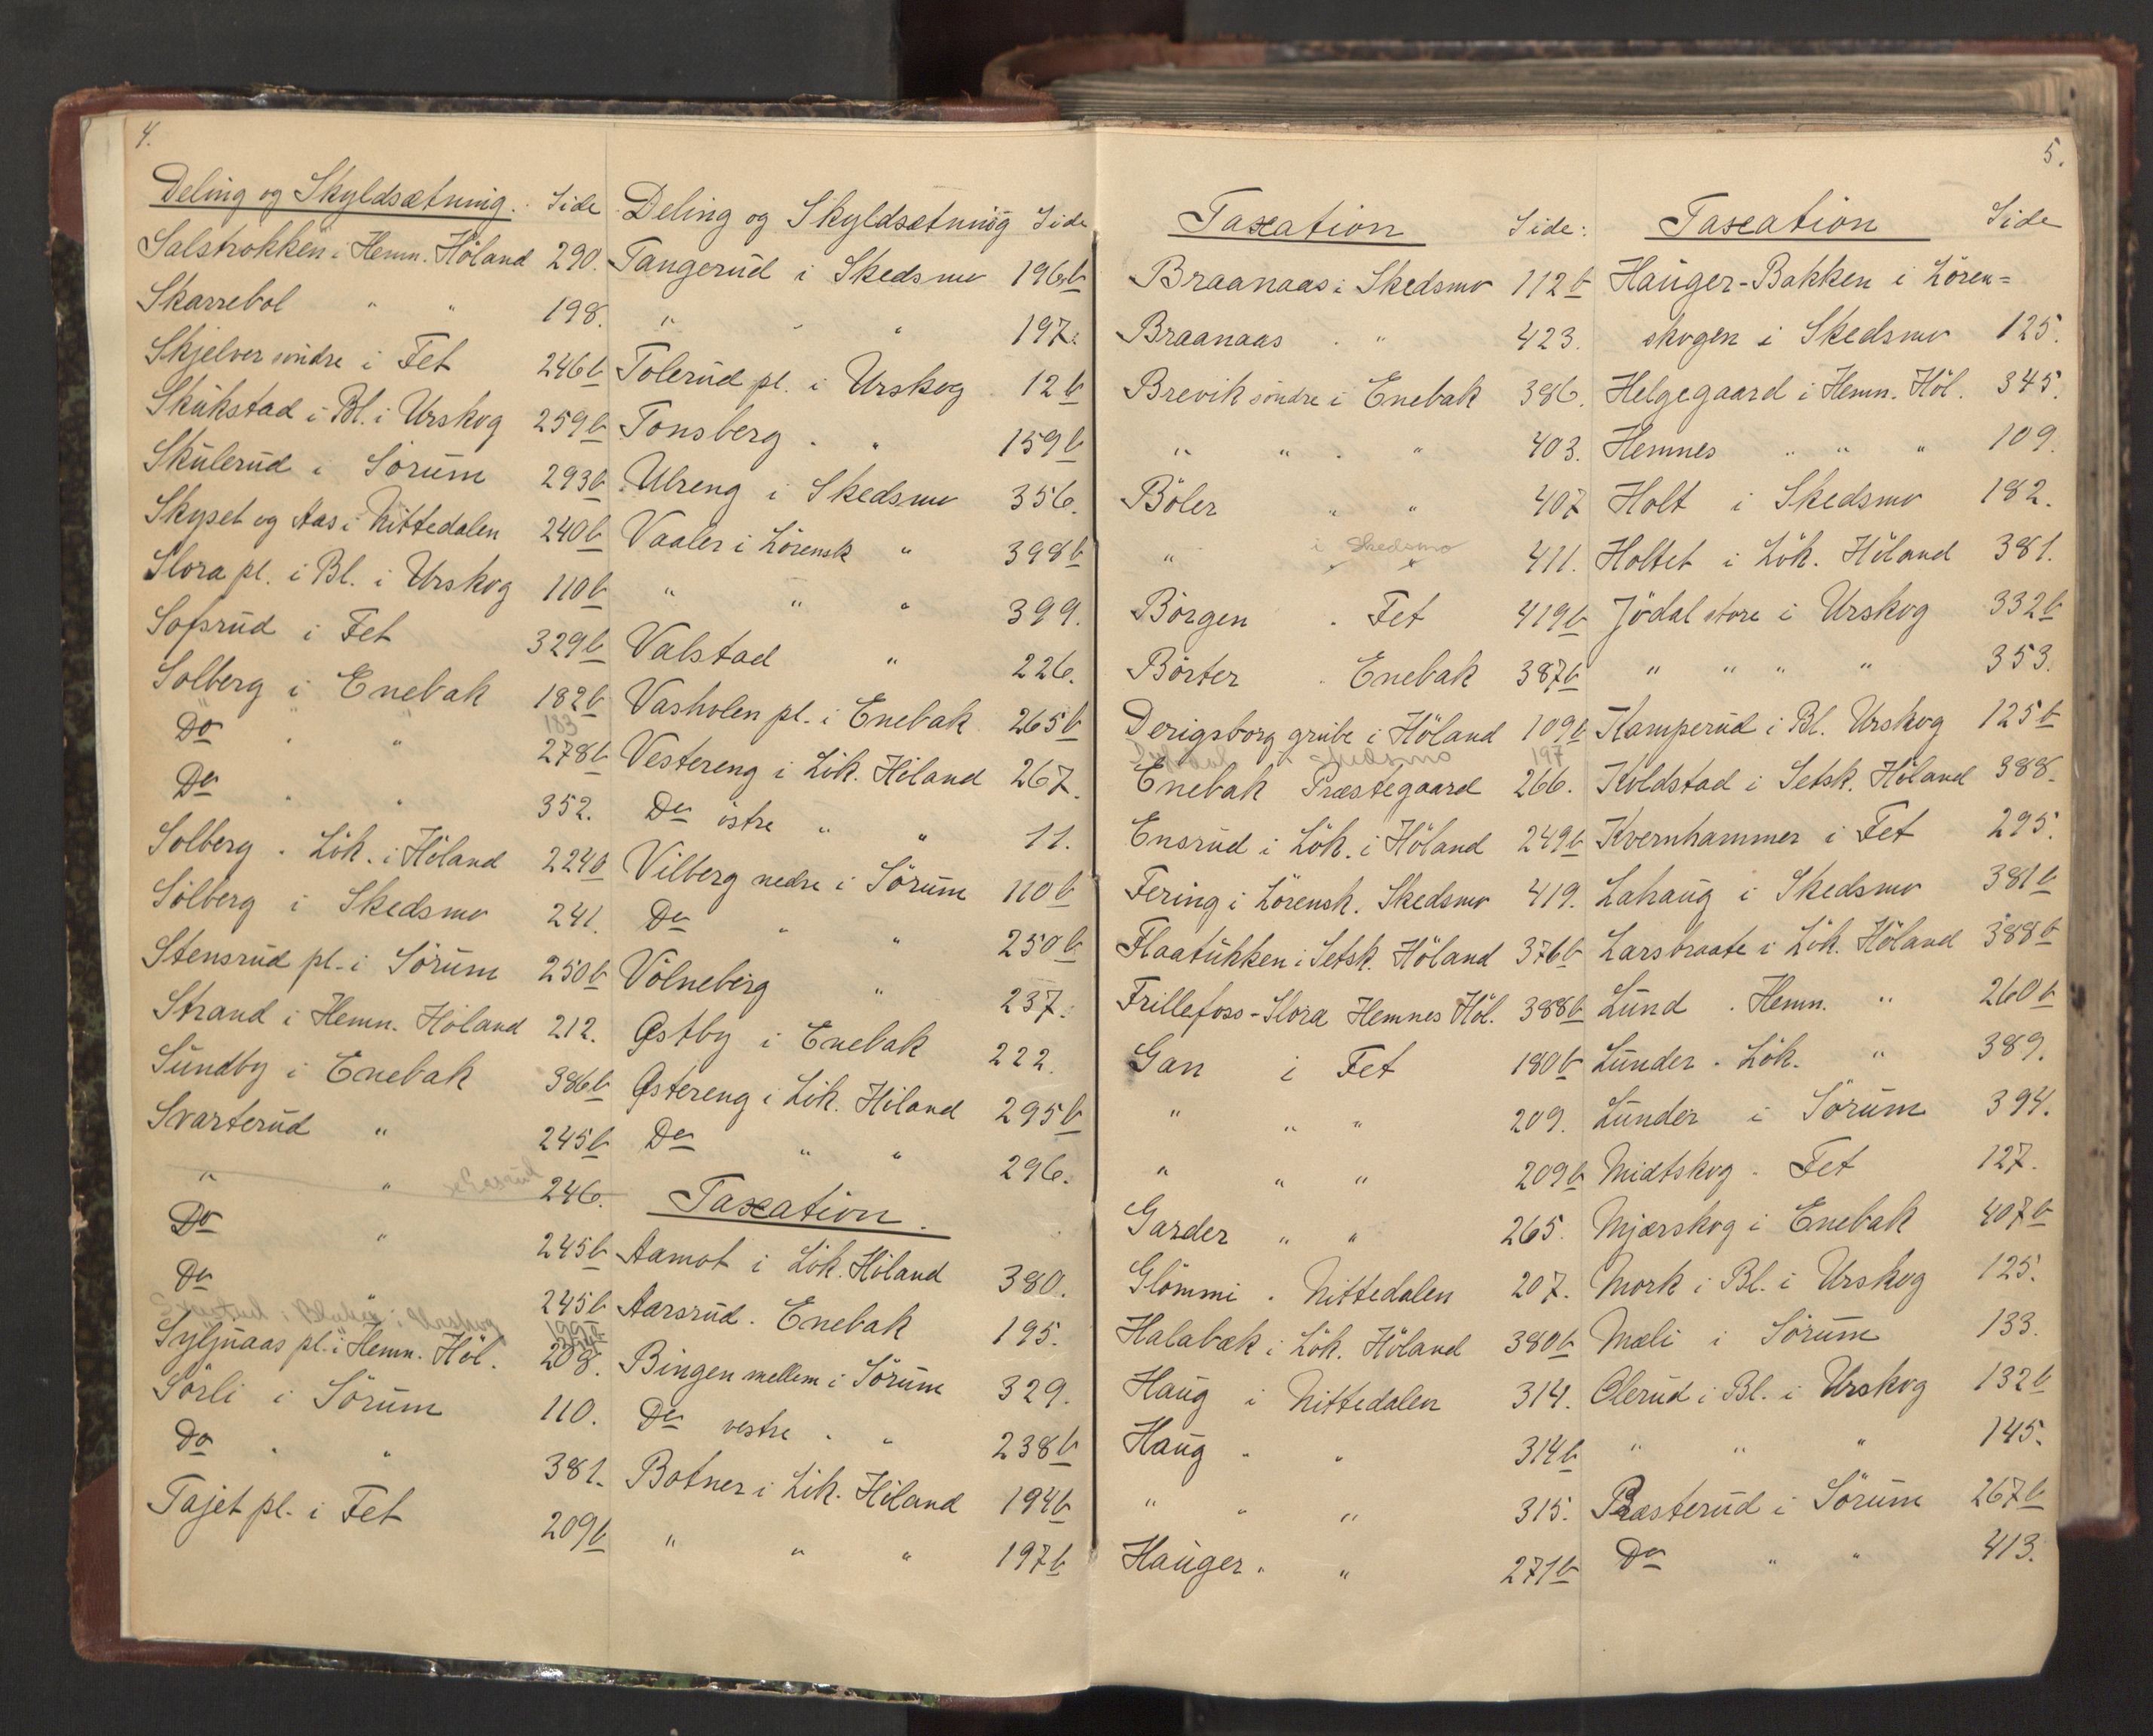 4.
Deling og Skyldsætning. Side
Salstrokken i Hemn. Höland 290.
Skarrebol " " 198.
Skjelver söndre i Fet 246b
Skukstad i Bl. i Urskog 259b
Skulerud i Sörum 293b
Skyset og Aas i Nittedalen 240b
Slora pl. i Bl. i Urskog 110b
Sofsrud i Fet 329b
Solberg i Enebak 182b
183
Do " " 278b
Do " " 352.
Solberg . Lök. i Höland 224b
Solberg i Skedsmo 241.
Stensrud pl. i Sörum 250b
Strand i Hemn. Höland 212.
Sundby i Enebak 386b
Svarterud " 245b
" " 246.
Do " 245b
Do " 245b
i Blaker i Urskog 199b
Syljuaas pl. i Hemn. Höl. 208.
Sörli i Sörum 110.
Do . " 381.
Tajet pl. i Fet 209b
Deling og Skyldsætning Side
Tangerud i Skedsmo 196b
" " " 197.
Tolerud pl. i Urskog 12b
Tonsberg . " 159b
Ulreng i Skedsmo 356.
Vaaler i Lörensk " 398b
" " " 399.
Valstad " 226.
Vasholen pl. i Enebak 265b
Vestereng i Lök. Höland 267.
Do östre " " 11.
Vilberg nedre i Sörum 110b
Do " " 250b
Völneberg " 237.
Østby i Enebak 222.
Østereng i Lök. Höland 295b
Do " " 296.
Taxation.
Aamot i Lök. Höland 380.
Aarsrud . Enebak 195.
Bingen mellem i Sörum 329.
Do vestre . " 238b
Botner i Lök. Höland 194b
" " " 197b
5.
Taxation Side:
Braanaas i Skedsmo 112b
Braanaas . " 423.
Brevik söndre i Enebak 386.
" " . " 403.
Böler " " 407
" i Skedsmo 411.
Börgen . Fet 419b
Börter . Enebak 387b
Derigsborg grube i Höland 109b
Skedsmo 197
Enebak Præstegaard 266.
Ensrud i Lök. i Höland 249b
Fering i Lörensk. Skedsmo 419.
Flaatukken i Setsk. Höland 376b
Frillefoss-Slora Hemnes Höl. 388b
Gan i Fet 180b
" " " 209.
" " " 209b
Garder " " 265.
Glömmi . Nittedalen 207.
Halabæk i Lök. Höland 380b
Haug i Nittedalen 314.
Haug . " 314b
" " " 315.
Hauger . " 271b
Taxation Side
Hauger-Bakken i Lören=
skogen i Skedsmo 125.
Helgegaard i Hemn. Höl. 345.
Hemnes " " " 109.
Holt i Skedsmo 182.
Holtet i Lök. Höland 381.
Jödal store i Urskog 332b
" " " " 353.
Kamperud i Bl. Urskog 125b
Koldstad i Setsk. Höland 388.
Kvernhammer i Fet 295.
Lahaug i Skedsmo 381b
Larsbraate i Lök. Höland 388b
Lund . Hemn. " 260b
Lunder . Lök. " 389.
Lunder i Sörum 394.
Midtskog . Fet 127.
Mjærskog i Enebak 407b
Mork i Bl. i Urskog 125.
Mæli i Sörum 133.
Olerud i Bl. i Urskog 132b
" " " 145.
Præsterud i Sörum 267b
Do " " 413.